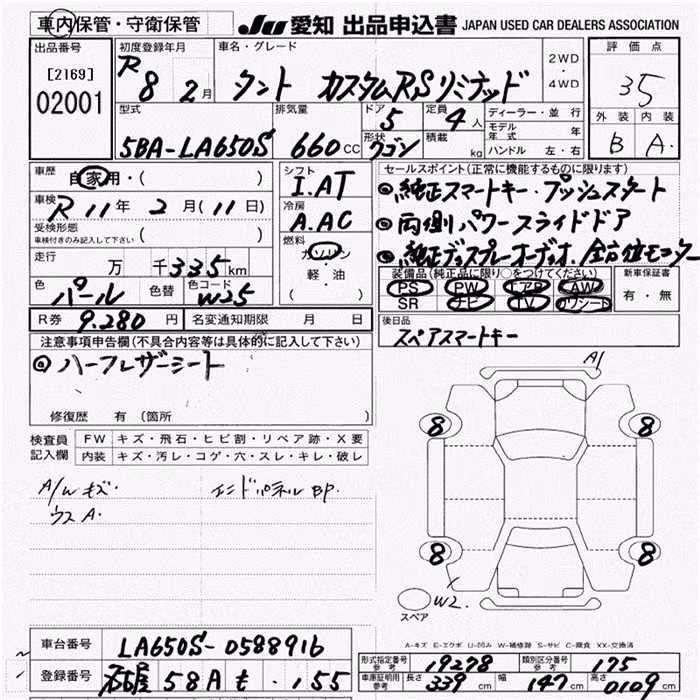 車内保管・守衛保管
JU 愛知 出品申込書 JAPAN USED CAR DEALERS ASSOCIATION
出品番号
[2169]
02001
初度登録年月
R 8 2月
車名・グレード
タント カスタムRSリミテッド
2WD
・
4WD
評価点
3.5
外装 内装
B A
型式
5BA-LA650S
排気量
660 CC
ドア
5
形状
ワゴン
定員
4人
積載
kg
ディーラー・並行
モデル年式 年
ハンドル 左・右
車歴
自家用・( )
車検
R 11年 2月(11日)
受検形態
車検付きのみ記入して下さい ( )
走行
万 千335km
色
パール
色替
色コード
W25
シフト
I.AT
冷房
A.AC
燃料
ガソリン
・
軽・油
( )
セールスポイント(正常に機能するものに限ります)
◎純正スマートキー・プッシュスタート
◎両側パワースライドドア
◎純正ディスプレーオーディオ、全方位モニター
装備品(純正品に限り○をつけてください)
PS PW エアB AW
SR ナビ TV カワシート
新車保証書
有・無
R券 9.280円
名変通知期限 月 日
後日品
スペアスマートキー
注意事項申告欄(不具合内容等は具体的に記入して下さい)
◎ハーフレザーシート
修復歴 有(箇所 )
検査員記入欄
FW キズ・飛石・ヒビ割・リペア跡・X要
内装 キズ・汚レ・コゲ・穴・スレ・キレ・破レ
A/Wキズ・
ウスA.
インドパネルBP.
A/
8 8
8 8
W2.
スペア
A-キズ E-エクボ U-凹み W-補修跡 S-サビ C-腐食 XX-交換済
車台番号 LA650S-0588916
登録番号 名古屋 58A も ・155
形式指定番号 参考 19278
類別区分番号 参考 175
車庫証明用 参考 長さ 339cm 幅 147cm 高さ 0109cm